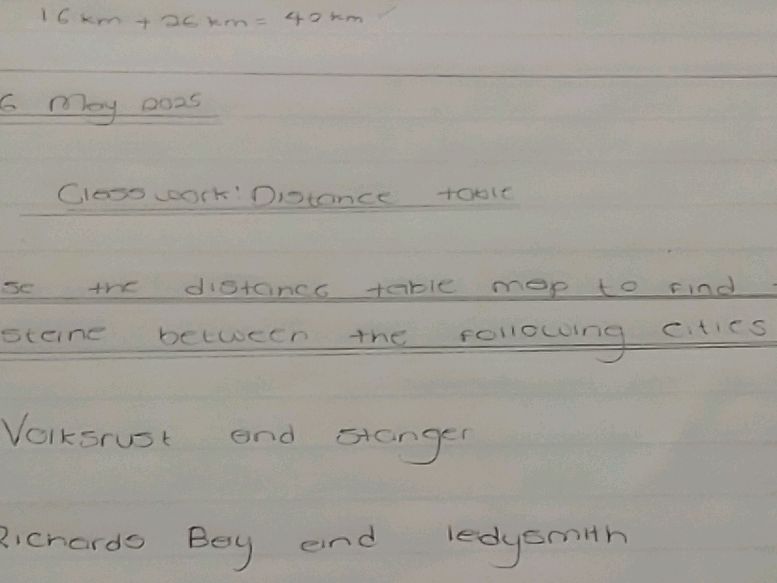 16 km + 26 km = 42 km
6 May 2025
Classwork: Distance table
se the distance table map to find
stance between the following cities
Volksrust and Stanger
Richards Bay and ledysmith